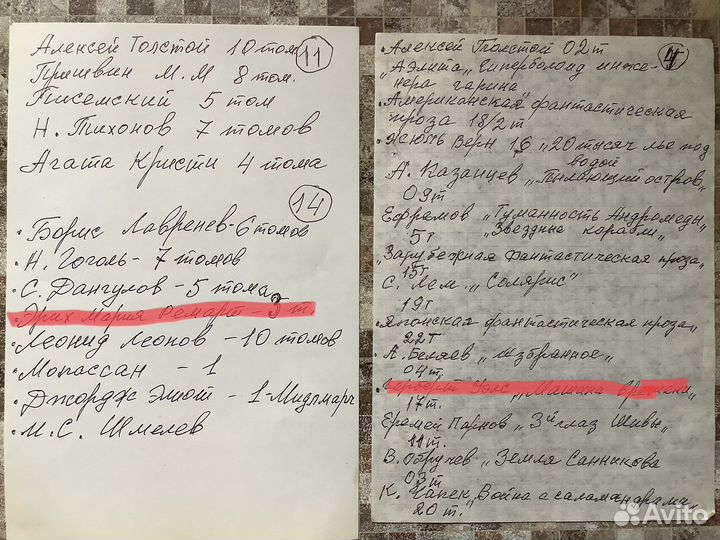 11
Алексей Толстой 10 том
Пришвин М.М 8 том.
Писемский 5 том
Н. Тихонов 7 томов
Агата Кристи 4 тома
14
• Борис Лавренев - 6 томов
• Н. Гоголь - 7 томов
• С. Дангулов - 5 тома
• Эрих Мария Ремарт - 3 т.
• Леонид Леонов - 10 томов
• Мопассан - 1
• Джордж Элиот - 1 - Мидлмарч
• И.С. Шмелев
4
• Алексей Толстой 02т
„Аэлита„ Гиперболоид инже-
нера гарина
• Американская фантастическая
проза 18/2т
• Жюль Верн 16 „20 тысяч лье под
водой
А. Казанцев „Пылающий остров„
09т
Ефремов „Туманность Андромеды„
5т „Звездные корабли„
„Зарубежная фантастическая проза„
15т
С. Лем. „Солярис"
19т
Японская фантастическая проза„
22т
• А. Беляев „Избранное„
04т.
• Герберт Уэлс „Машина времени„
17т.
Еремей Парнов „3й глаз Шивы„
11т.
В. Обручев „Земля Санникова
03т
К. Чапек „Война с саламандрами„
20т.
Avito